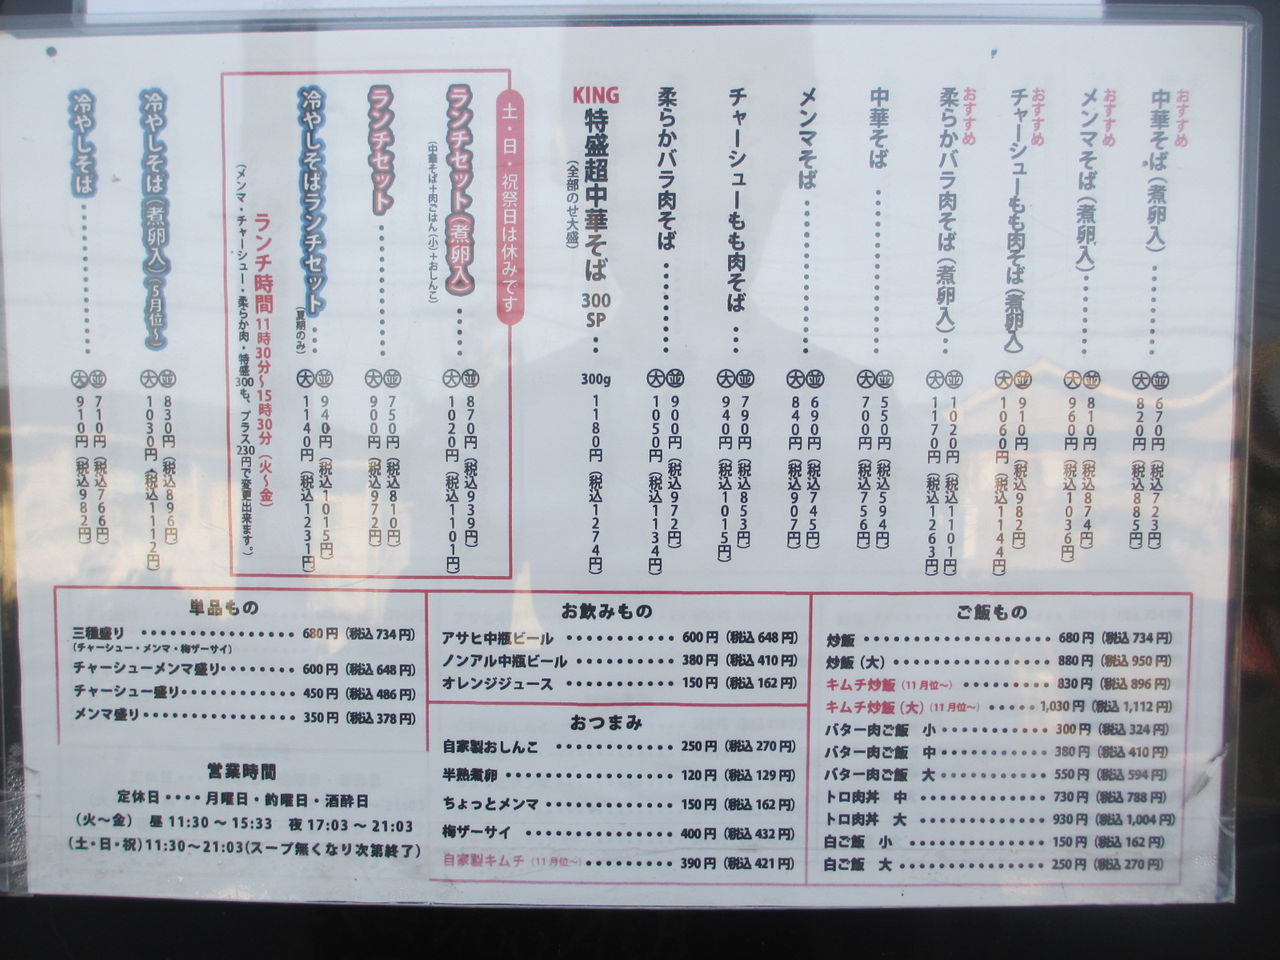 おすすめ
中華そば（煮卵入）
並 670円（税込723円）
大 820円（税込885円）
おすすめ
メンマそば（煮卵入）
並 810円（税込874円）
大 960円（税込1036円）
おすすめ
チャーシューもも肉そば（煮卵入）
並 910円（税込982円）
大 1060円（税込1144円）
おすすめ
柔らかバラ肉そば（煮卵入）
並 1020円（税込1101円）
大 1170円（税込1263円）
中華そば
並 550円（税込594円）
大 700円（税込756円）
メンマそば
並 690円（税込745円）
大 840円（税込907円）
チャーシューもも肉そば
並 790円（税込853円）
大 940円（税込1015円）
柔らかバラ肉そば
並 900円（税込972円）
大 1050円（税込1134円）
KING
特盛超中華そば 300SP
（全部のせ大盛）
300g 1180円（税込1274円）
土・日・祝祭日は休みです
ランチセット（煮卵入）
（中華そば＋肉ごはん（小）＋おしんこ）
並 870円（税込939円）
大 1020円（税込1101円）
ランチセット
並 750円（税込810円）
大 900円（税込972円）
冷やしそばランチセット
（夏期のみ）
並 940円（税込1015円）
大 1140円（税込1231円）
ランチ時間 11時30分〜15時30分（火〜金）
（メンマ・チャーシュー・柔らか肉・特盛300も、プラス230円で変更出来ます。）
冷やしそば（煮卵入）（5月位〜）
並 830円（税込896円）
大 1030円（税込1112円）
冷やしそば
並 710円（税込766円）
大 910円（税込982円）
単品もの
三種盛り 680円（税込734円）
（チャーシュー・メンマ・梅ザーサイ）
チャーシューメンマ盛り 600円（税込648円）
チャーシュー盛り 450円（税込486円）
メンマ盛り 350円（税込378円）
営業時間
定休日・・・・月曜日・釣曜日・酒酔日
（火〜金） 昼 11:30〜15:33 夜 17:03〜21:03
（土・日・祝）11:30〜21:03（スープ無くなり次第終了）
お飲みもの
アサヒ中瓶ビール 600円（税込648円）
ノンアル中瓶ビール 380円（税込410円）
オレンジジュース 150円（税込162円）
おつまみ
自家製おしんこ 250円（税込270円）
半熟煮卵 120円（税込129円）
ちょっとメンマ 150円（税込162円）
梅ザーサイ 400円（税込432円）
自家製キムチ（11月位〜） 390円（税込421円）
ご飯もの
炒飯 680円（税込734円）
炒飯（大） 880円（税込950円）
キムチ炒飯（11月位〜） 830円（税込896円）
キムチ炒飯（大）（11月位〜） 1,030円（税込1,112円）
バター肉ご飯 小 300円（税込324円）
バター肉ご飯 中 380円（税込410円）
バター肉ご飯 大 550円（税込594円）
トロ肉丼 中 730円（税込788円）
トロ肉丼 大 930円（税込1,004円）
白ご飯 小 150円（税込162円）
白ご飯 大 250円（税込270円）